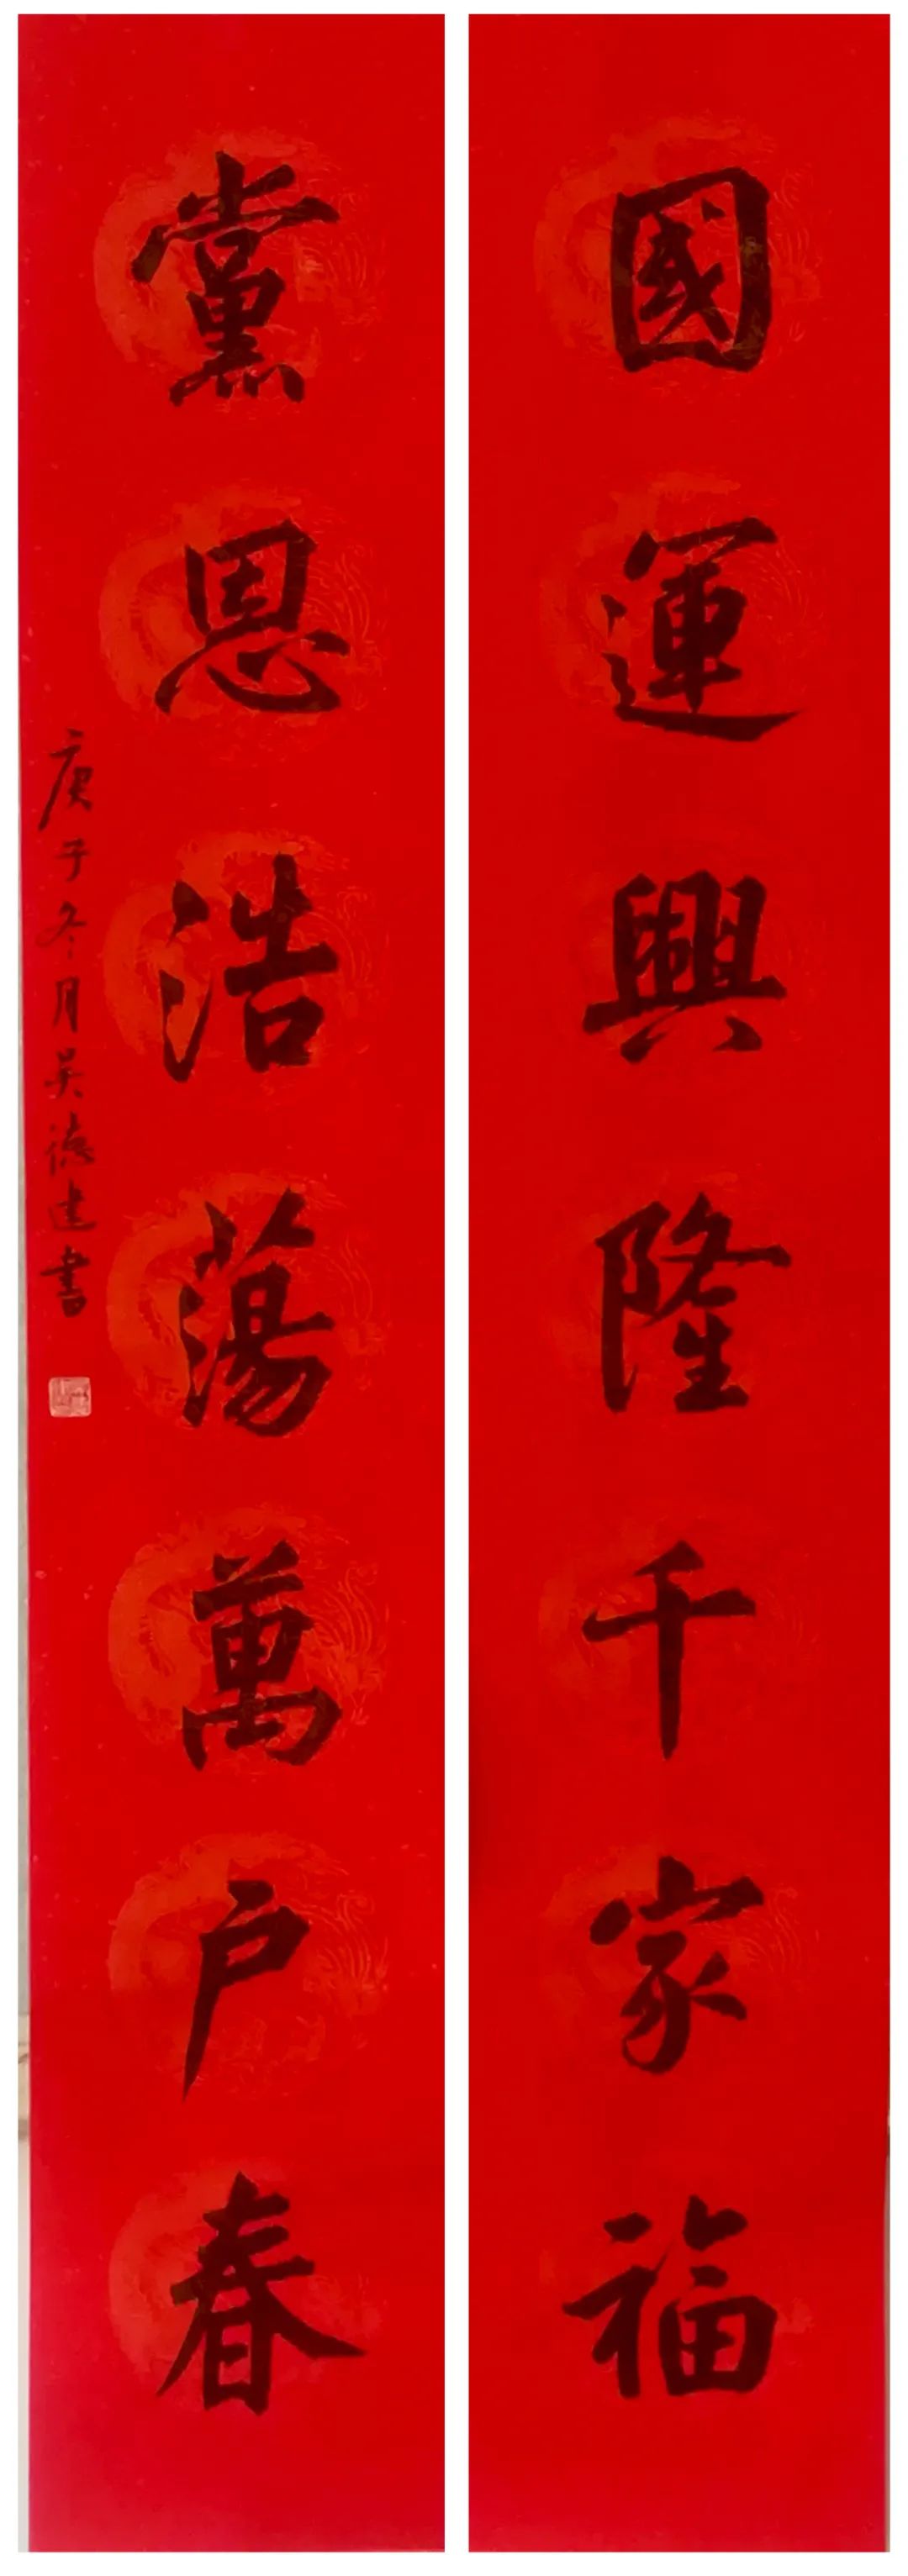 國運興隆千家福
黨恩浩蕩萬户春
庚子冬月吴德建書